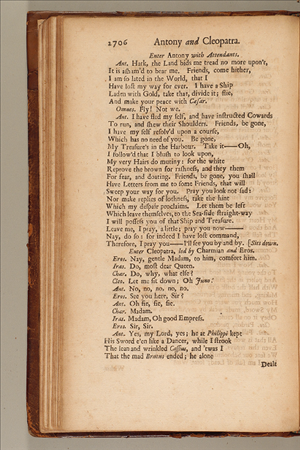 2706 Antony and Cleopatra.
Enter Antony with Attendants.
Ant. Hark, the Land bids me tread no more upon't,
It is asham'd to bear me. Friends, come hither,
I am so lated in the World, that I
Have lost my way for ever. I have a Ship
Laden with Gold, take that, divide it; flie,
And make your peace with Cæsar.
Omnes. Fly! Not we.
Ant. I have fled my self, and have instructed Cowards
To run, and shew their Shoulders. Friends, be gone,
I have my self resolv'd upon a course,
Which has no need of you. Be gone,
My Treasure's in the Harbour. Take it——Oh,
I follow'd that I blush to look upon,
My very Hairs do mutiny: for the white
Reprove the brown for rashness, and they them
For fear, and doating. Friends, be gone, you shall
Have Letters from me to some Friends, that will
Sweep your way for you. Pray you look not sad:
Nor make replies of lothness, take the hint
Which my despair proclaims. Let them be left
Which leave themselves, to the Sea-side straight-way
I will possess you of that Ship and Treasure.
Leave me, I pray, a little; pray you now——
Nay, do so: for indeed I have lost command,
Therefore, I pray you——I'll see you by and by. [Sits down.
Enter Cleopatra, led by Charmian and Eros.
Eros. Nay, gentle Madam, to him, comfort him.
Iras. Do, most dear Queen.
Char. Do, why, what else?
Cleo. Let me sit down; Oh Juno!
Ant. No, no, no, no, no.
Eros. See you here, Sir?
Ant. Oh fie, fie, fie.
Char. Madam.
Iras. Madam, Oh good Empress.
Eros. Sir, Sir.
Ant. Yes, my Lord, yes; he at Philippi kept
His Sword e'en like a Dancer, while I strook
The lean and wrinkled Cassius, and 'twas I
That the mad Brutus ended; he alone
Dealt